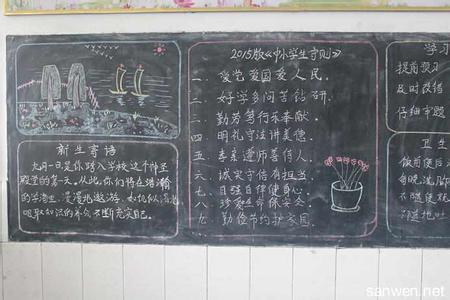 新生寄语
九月一日是你踏入学校这个神圣
殿堂的第一天，从此，你们将在浩瀚
的学海里，漫漫地遨游，如饥似渴地
吸取知识的养分不断充实自己。
2015版《中小学生守则》
一、爱党爱国爱人民。
二、好学多问肯钻研．
三、勤劳笃行乐奉献．
四、明礼守法讲美德．
五、孝亲尊师善待人．
六、诚实守信有担当．
七、自强自律健身心．
八、珍爱生命保安全．
九、勤俭节约护家园．
学习
提前预习
及时改错
仔细审题
卫生
饭前便后
不随地吐
sanwen.net